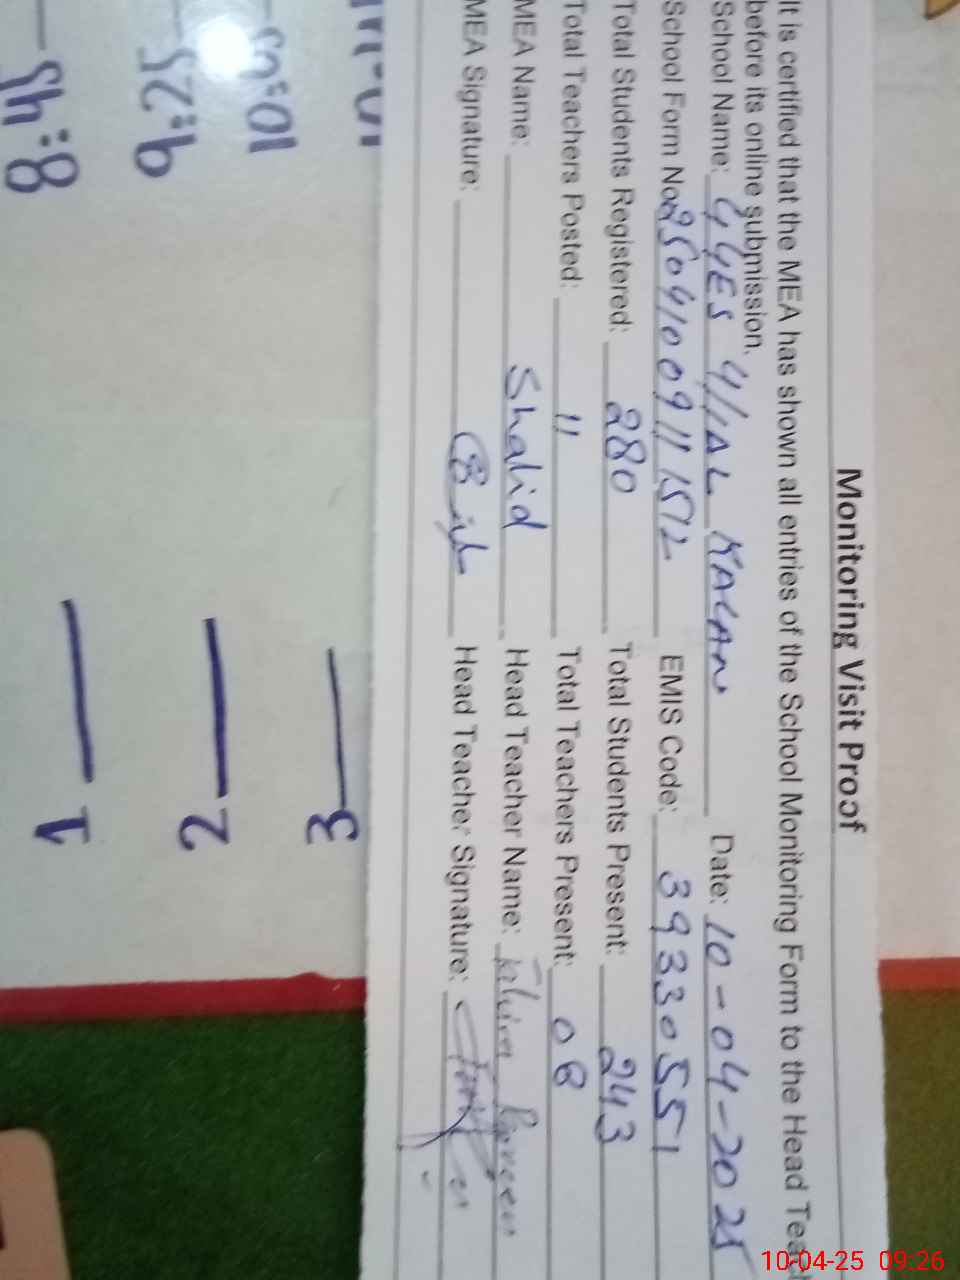 Monitoring Visit Proof
It is certified that the MEA has shown all entries of the School Monitoring Form to the Head Teach
before its online submission.
School Name: GGES 4/1AL KALAN Date: 10-04-2025
School Form No: 25041009111512 EMIS Code: 39330551
Total Students Registered: 280 Total Students Present: 243
Total Teachers Posted: 11 Total Teachers Present: 08
MEA Name: Shahid Head Teacher Name: Parveen
MEA Signature: Head Teacher Signature:
10:05
9:25
8:45
3
2
1
10-04-25 09:26